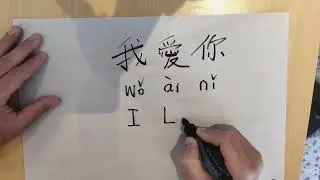 我愛你
wǒ ài nǐ
I L